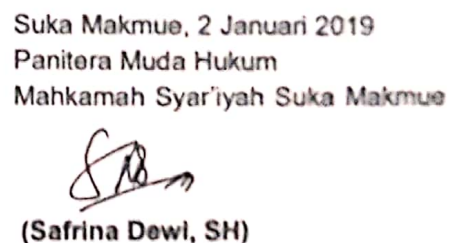 Suka Makmue, 2 Januari 2019
Panitera Muda Hukum
Mahkamah Syar'iyah Suka Makmue
(Safrina Dewi, SH)